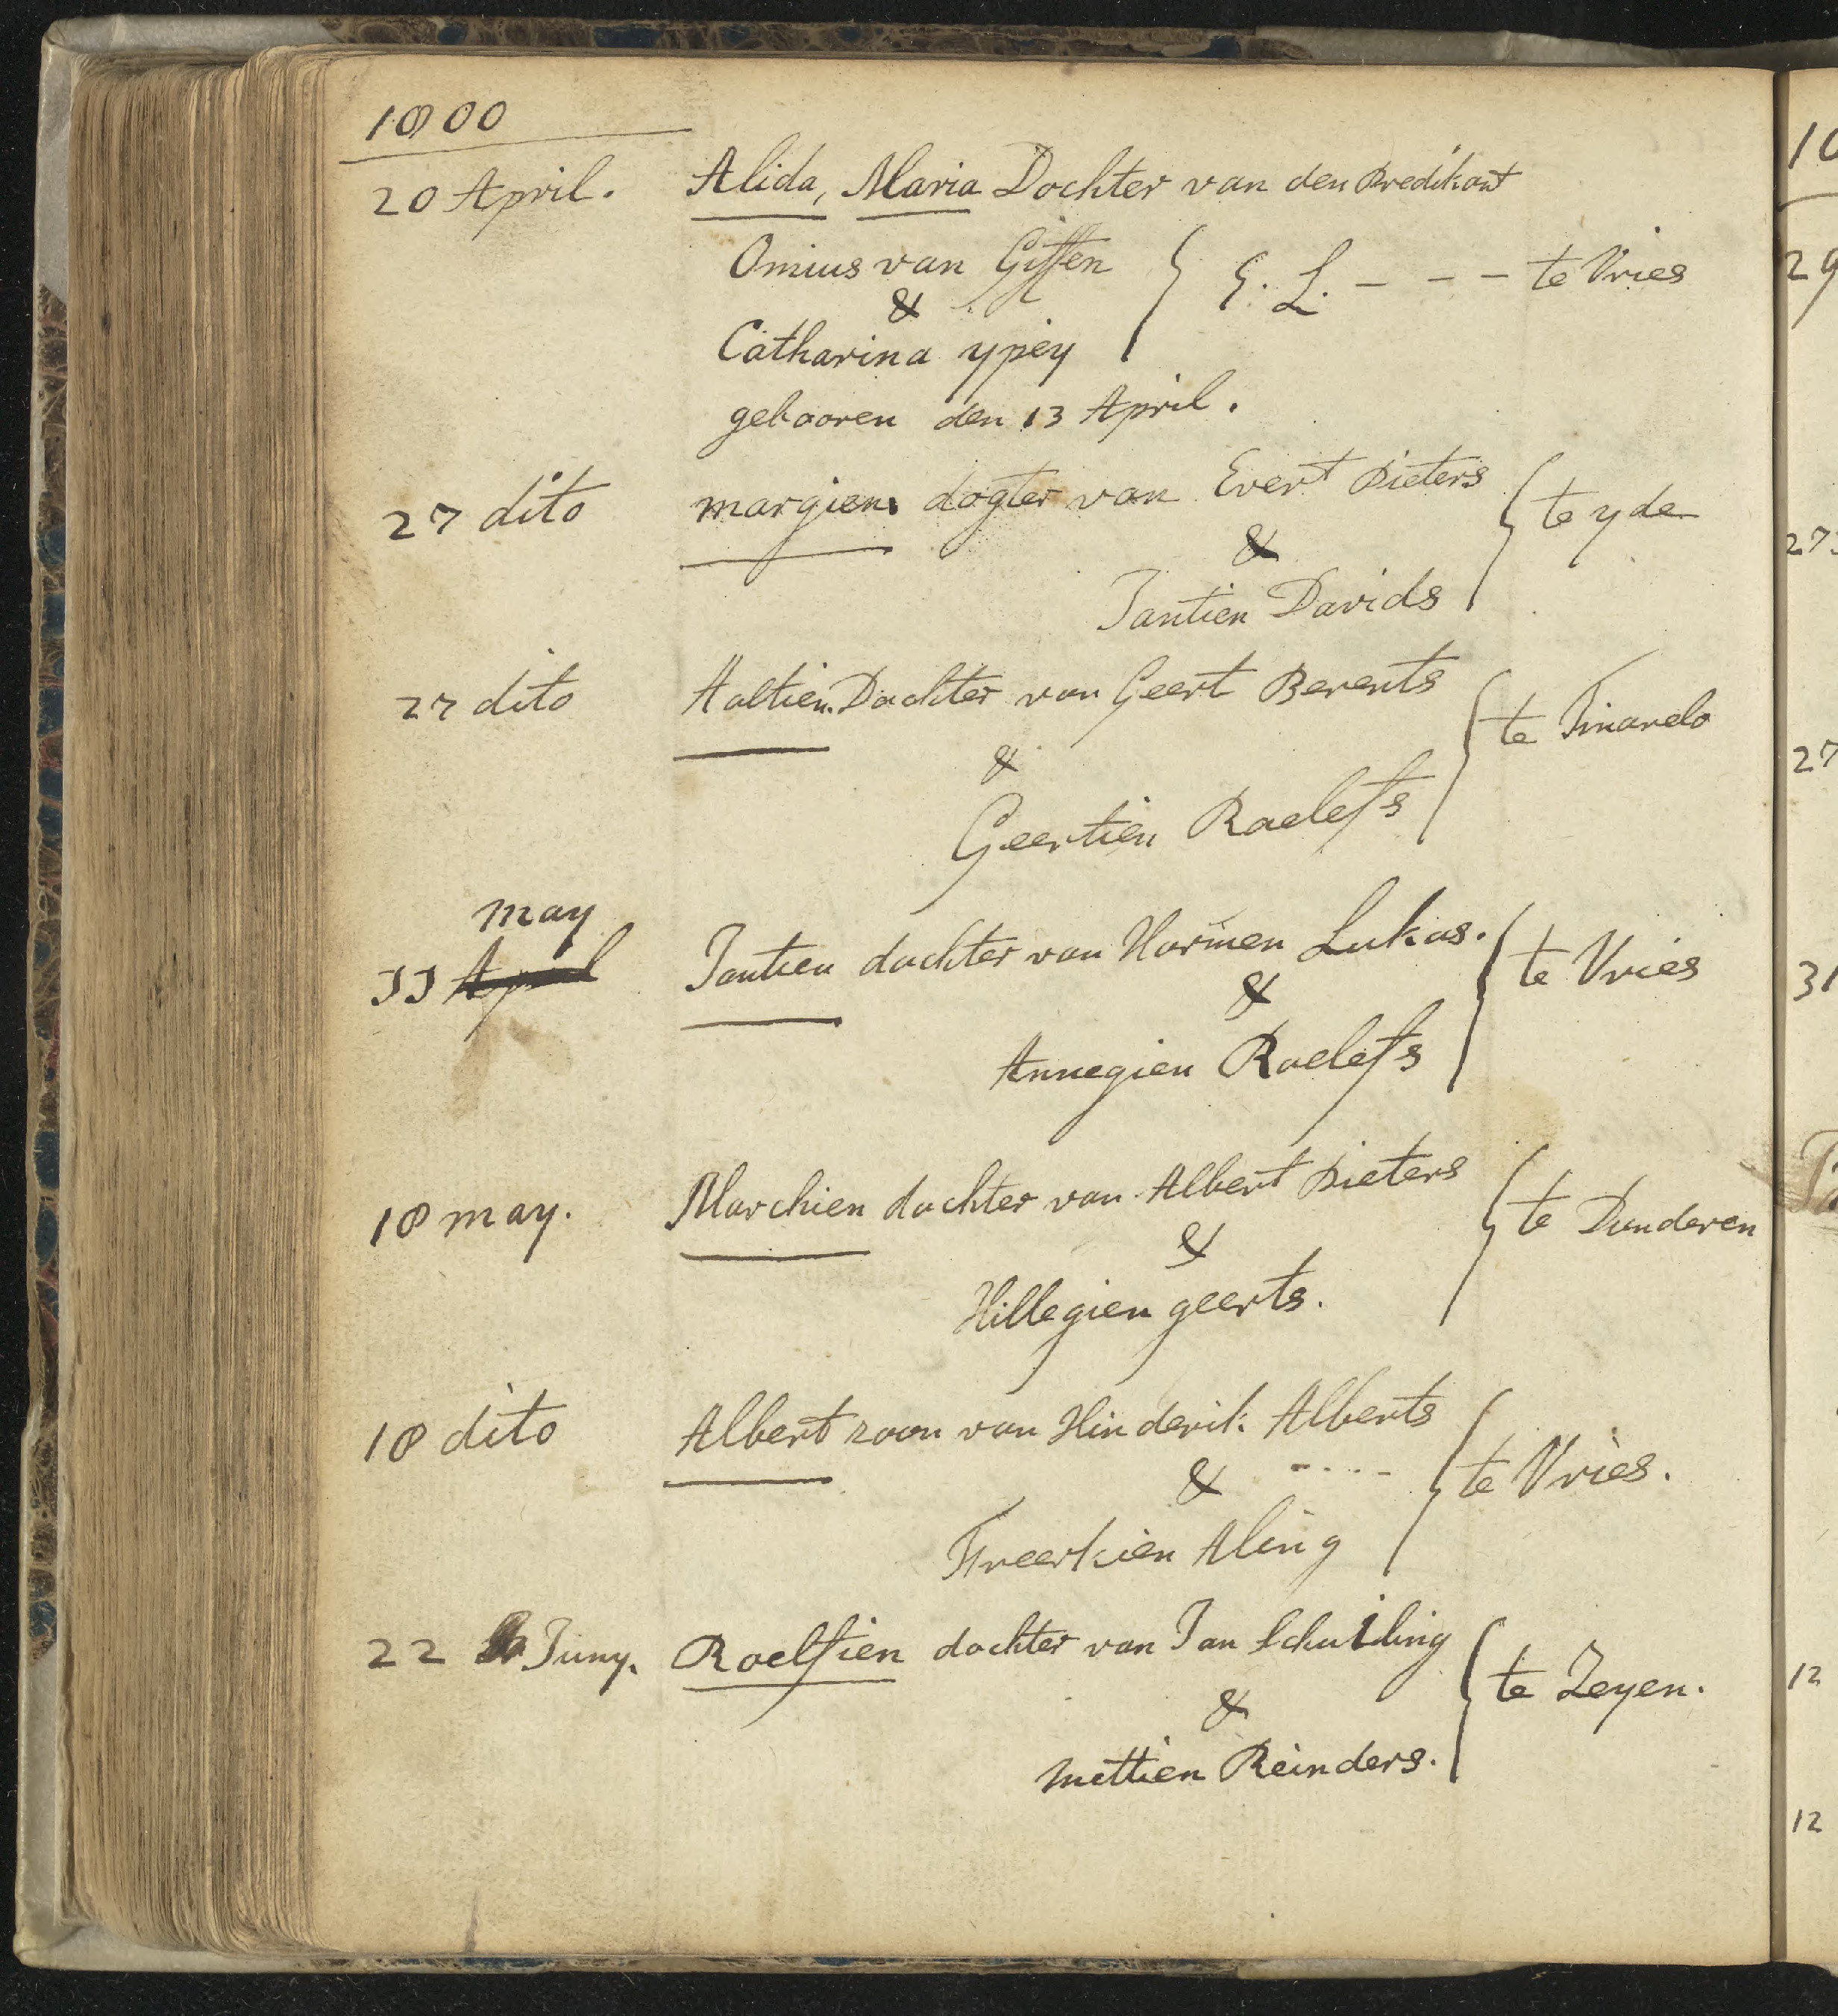 1800
20 April. Alida, Maria Dochter van den Predikant
Omius van Giffen
&
Catharina ypeij
E. L. - - - te Vries
gebooren den 13 April.
27 dito margien dogter van Evert Pieters
&
Jantien Davids
te yde
27 dito Aaltien Dochter van Geert Berents
&
Geertien Roelefs
te Tinarelo
may
11 April Jantien dochter van Harmen Lukas.
&
Annegien Roelefs
te Vries
18 may. Marchien dochter van Albert Pieters
&
Hillegien geerts.
te Dunderen
18 dito Albert zoon van Hinderik Alberts
&
Freerkien Aling
te Vries.
22 Juny. Roelfien dochter van Jan Schuiling
&
mettien Reinders.
te Zeyen.
29
27
27
31
12
12